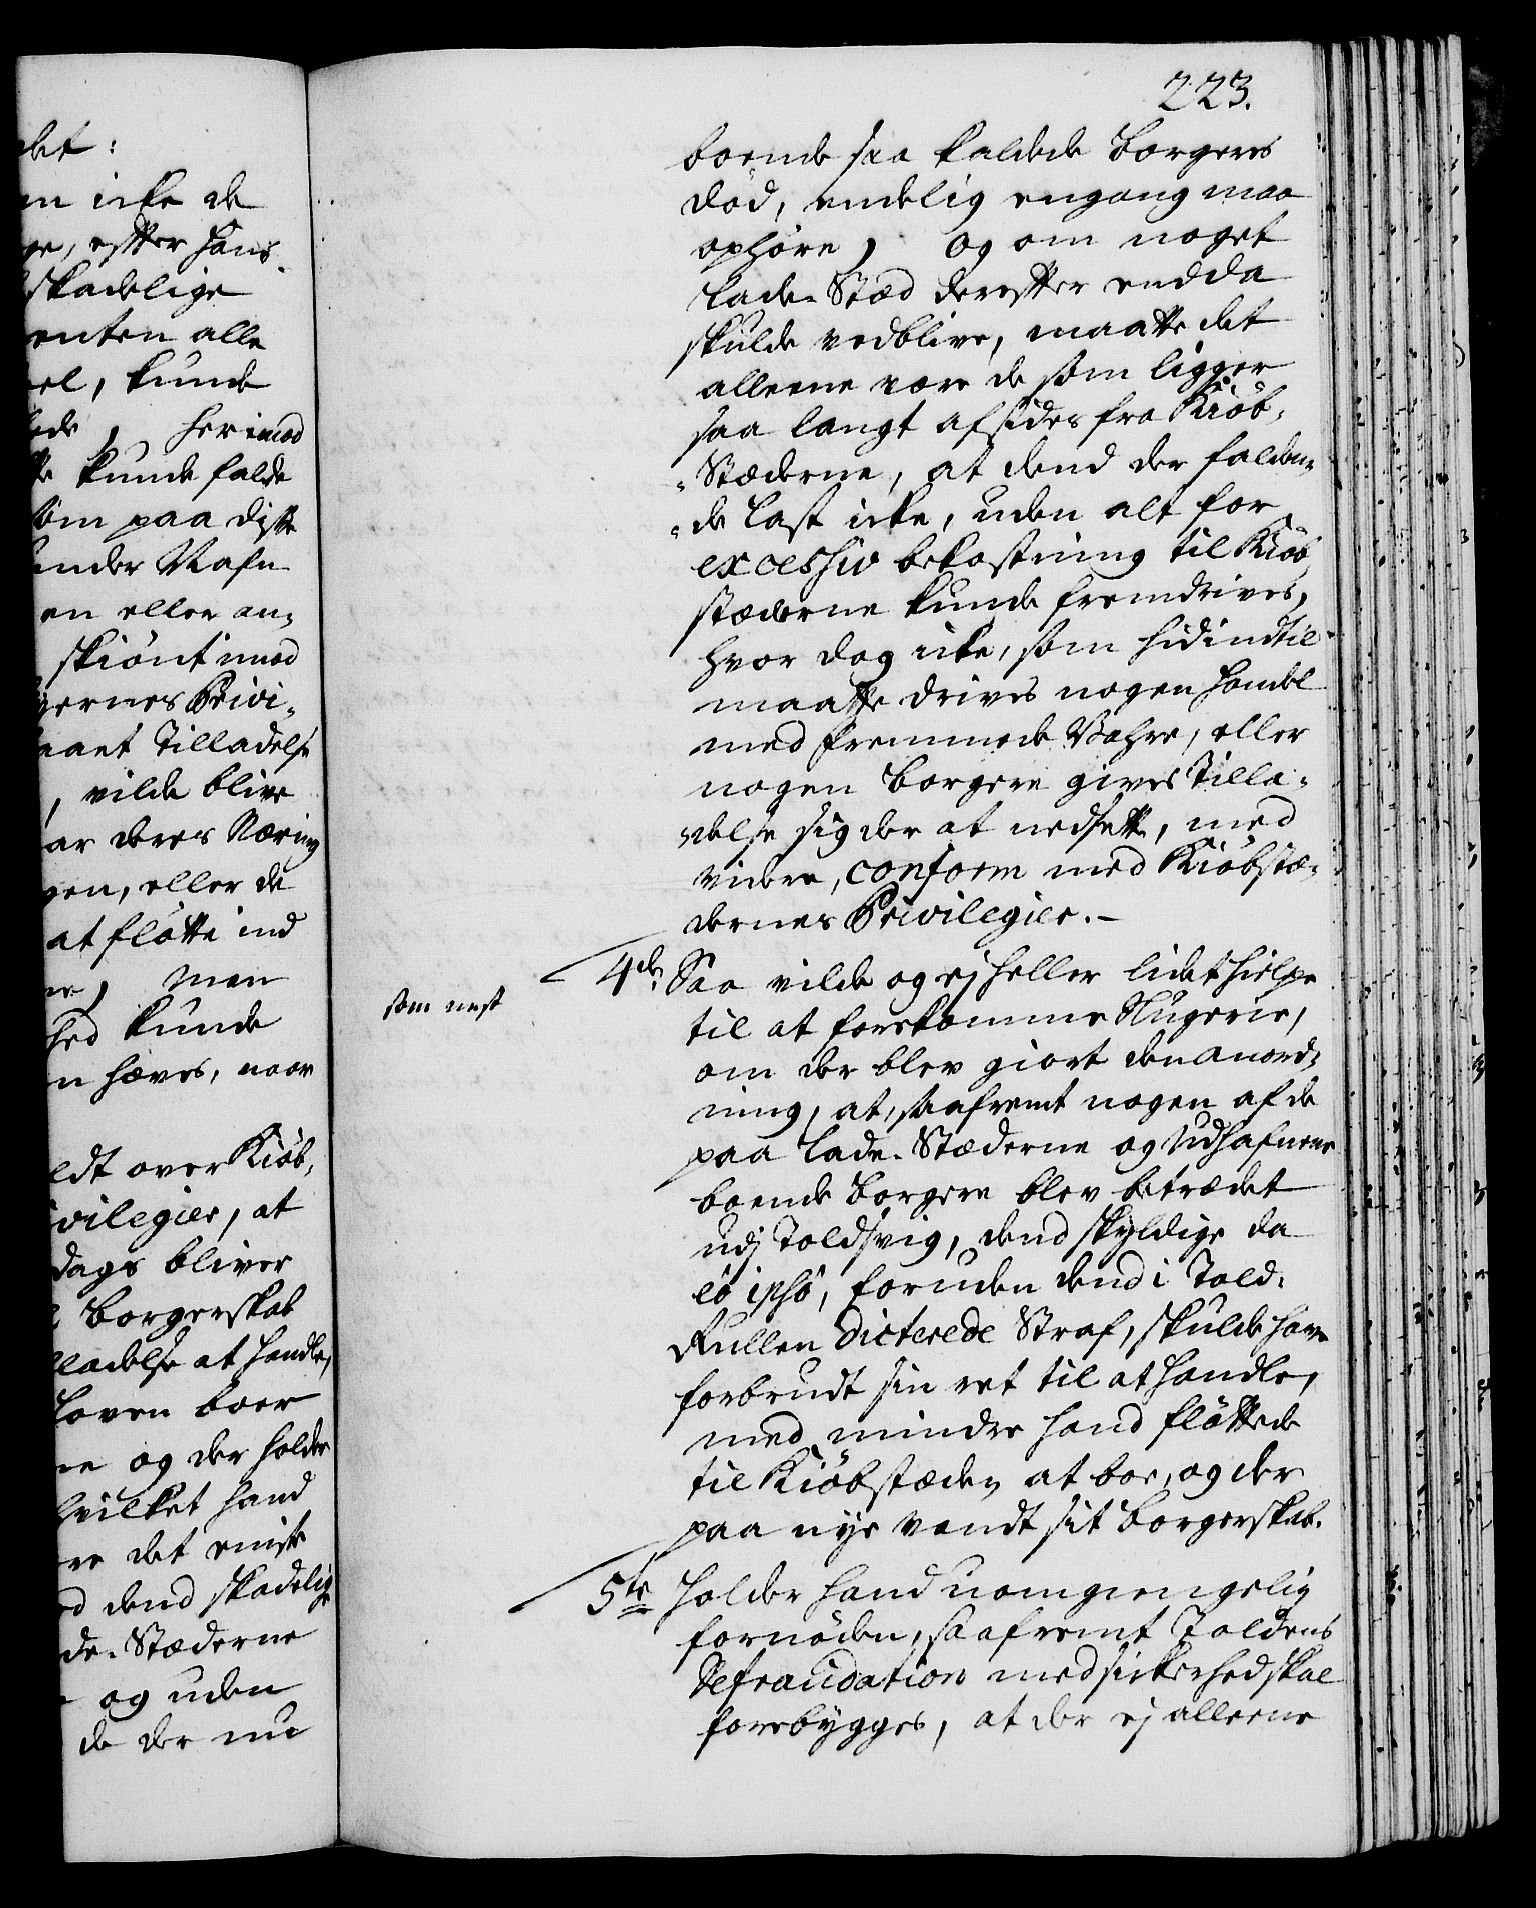 det:
en icke de
ge, efter hans
skadelige
enten alle
el, kunde
ede, herimod
te kunde falde
som paa diste
under Nafn
en eller an¬
skiönt imod
gernes Privi¬
aaet Tilladelse
, vilde blive
ar deres Næring
gen, eller de
at flötte ind
er, men
hed kunde
n hæves, naar
eldt over Kiöb¬
vilegier, at
dags bliver
Borgerskab
lladelse at handle,
Loven boer
ne og der holder
hvilket hand
re det eniste
ed dend skadelig
de-Stæderne
og uden
de der nu
223.
boende saa kaldede Borgeres
död, endelig engang maa
ophöre, og om noget
Lade-Stæd derefter endda
skulde vedblive, maatte det
alleene være de som ligger
saa langt afsides fra Kiöb¬
Stæderne, at dend der falden¬
de Last icke, uden alt for
excessiv bekostning til Kiöb
stæderne kunde fremdrives,
hvor dog icke, som hidindtil
maatte drives nogen Handel
med fremmede Vahre, eller
nogen Borgere gives Tilla¬
delse sig der at nedsette, med
videre, conform med Kiöbstæ¬
dernes Privilegier.-
4de Saa vilde og ej heller lidet hielpe
som nest
til at forekomme Slugerie,
om der blev giort den anord¬
ning, at, saafremt nogen af de
paa Lade-Stæderne og Udhafnene
boende Borgere blev betrædet
udj Toldsvig, dend skyldige da
eo ipso, foruden dend i Told-
Rullen dicterede Straf, skulde have
forbrudt sin ret til at handle,
med mindre hand flöttede
til Kiöbstæden at boe, og der
paa nye vandt sit Borgerskab.
5te Holder hand uomgiengelig
fornöden, saafremt Toldens
Defraudation med sickerhed skal
forebygges, at der ej alleene